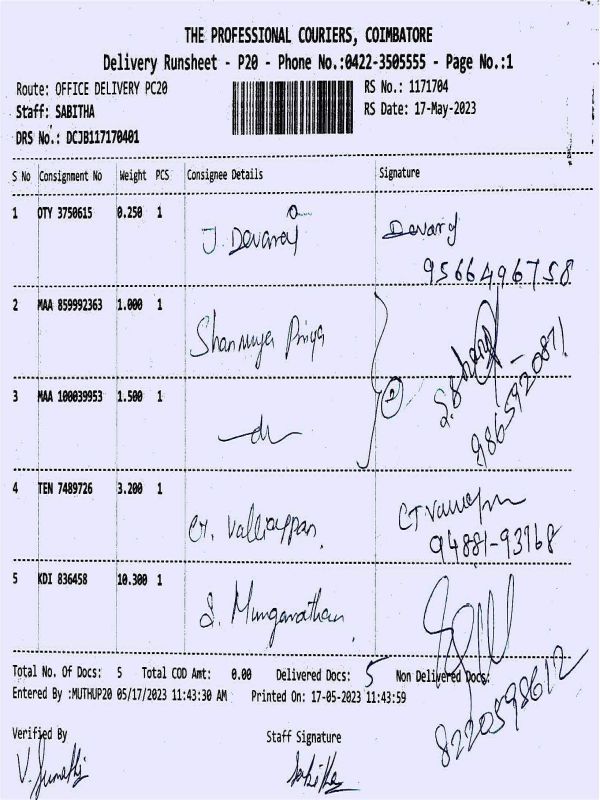 THE PROFESSIONAL COURIERS, COIMBATORE
Delivery Runsheet - P20 - Phone No.:0422-3505555 - Page No.:1
Route: OFFICE DELIVERY PC20 RS No.: 1171704
Staff: SABITHA RS Date: 17-May-2023
DRS No.: DCJB117170401
S No Consignment No Weight PCS Consignee Details Signature
1 OTY 3750615 0.250 1 J. Devaraj Devaraj
9566496758
2 MAA 859992363 1.000 1 Shanmuga Priya
9865920871
3 MAA 100039953 1.500 1
4 TEN 7489726 3.200 1 CT. Valliappan
94881-93168
5 KDI 836458 10.300 1
Total No. Of Docs: 5 Total COD Amt: 0.00 Delivered Docs: 5 Non Delivered Docs:
Entered By :MUTHUP20 05/17/2023 11:43:30 AM Printed On: 17-05-2023 11:43:59
8220598612
Verified By Staff Signature
V. Sumathi Sabitha